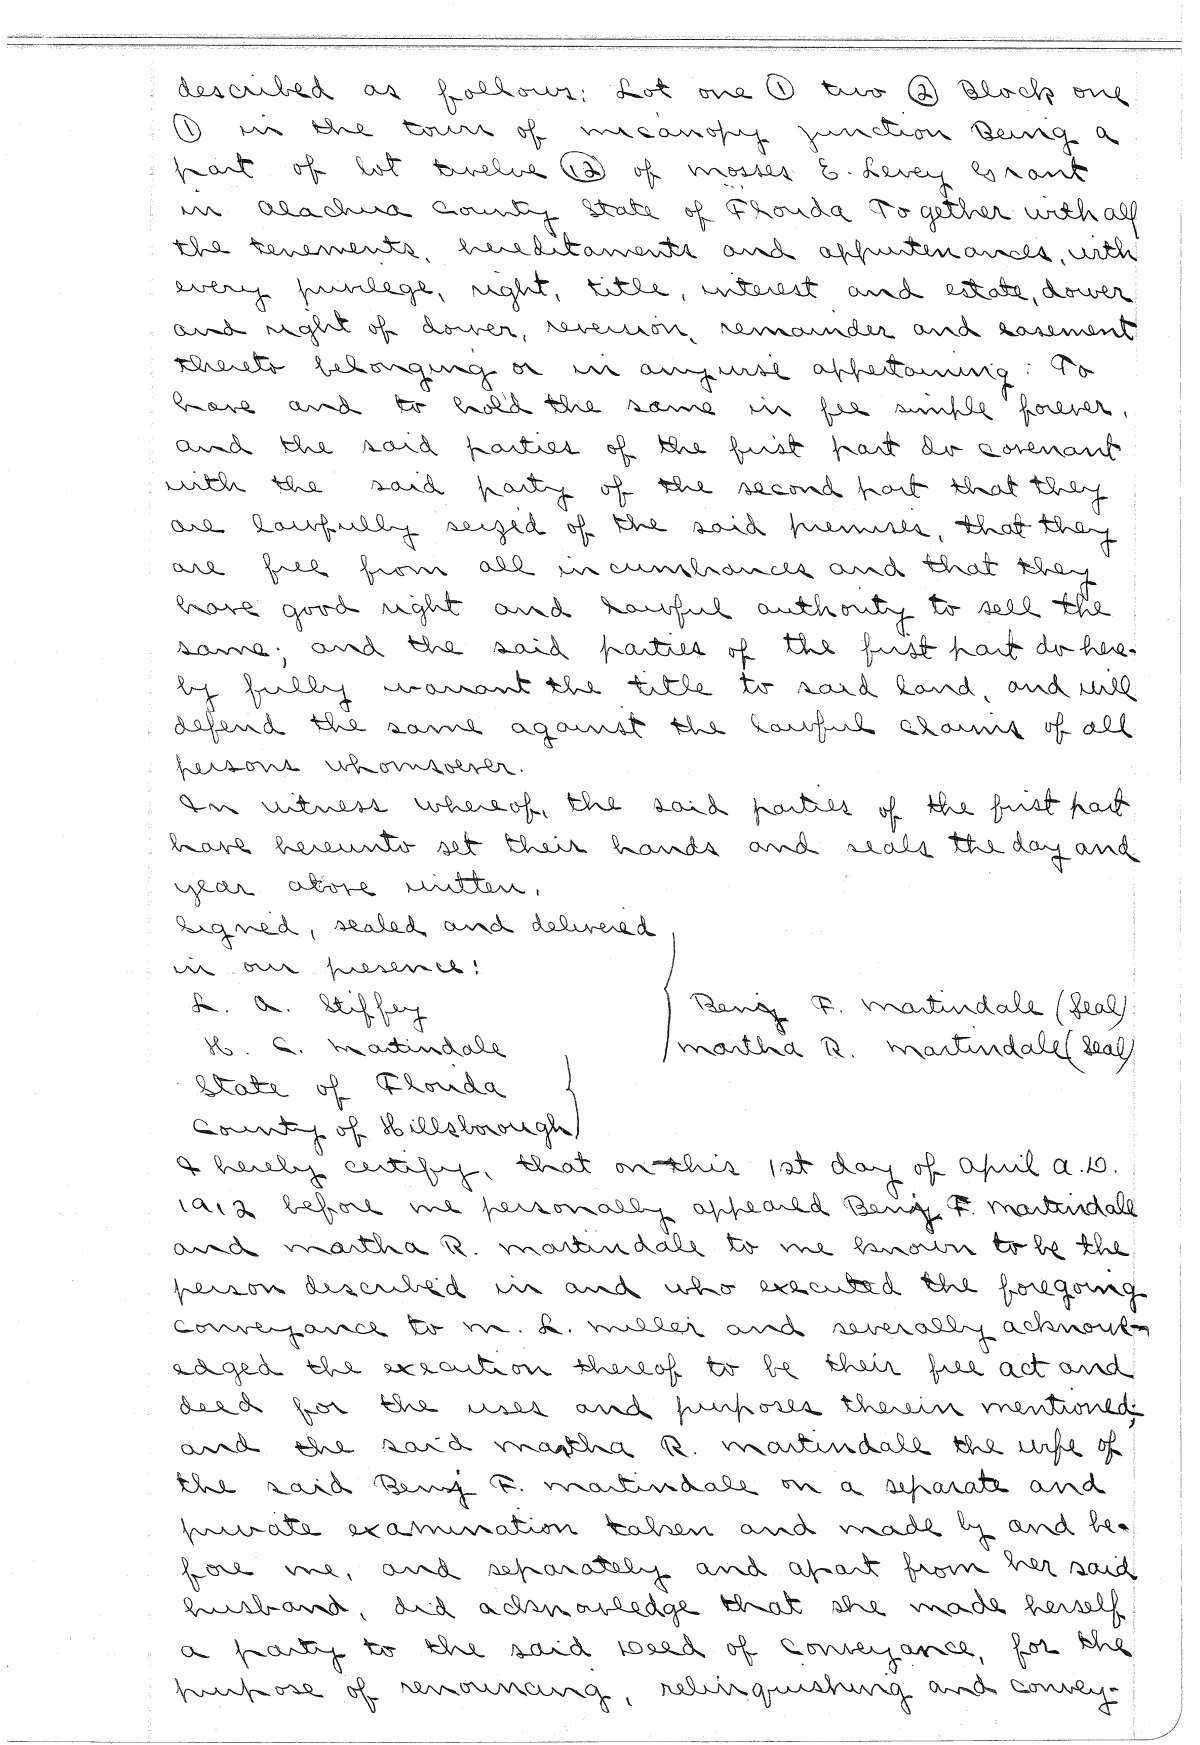 described as follows: Lot one ① two ② Block one
① in the town of micanopy junction Being a
part of lot twelve ⑫ of mosses E. Levey Grant
in Alachua County State of Florida Together with all
the tenements, hereditaments and appurtenances, with
every privilege, right, title, interest and estate, dower
and right of dower, reversion, remainder and easement
thereto belonging or in anywise appertaining: To
have and to hold the same in fee simple forever.
and the said parties of the first part do covenant
with the said party of the second part that they
are lawfully seized of the said premises, that they
are free from all incumbrances and that they
have good right and lawful authority to sell the
same; and the said parties of the first part do here-
by fully warrant the title to said land, and will
defend the same against the lawful claims of all
persons whomsoever.
In witness whereof, the said parties of the first part
have hereunto set their hands and seals the day and
year above written.
Signed, sealed and delivered
in our presence:
L. A. Stiffey Benj F. Martindale (Seal)
H. C. Martindale Martha R. Martindale (Seal)
State of Florida
County of Hillsborough
I hereby certify, that on this 1st day of April A.D.
1912 before me personally appeared Benj F. Martindale
and Martha R. Martindale to me known to be the
person described in and who executed the foregoing
conveyance to M. L. Miller and severally acknowl-
edged the execution thereof to be their free act and
deed for the uses and purposes therein mentioned;
and the said Martha R. Martindale the wife of
the said Benj F. Martindale on a separate and
private examination taken and made by and be-
fore me, and separately and apart from her said
husband, did acknowledge that she made herself
a party to the said Deed of Conveyance, for the
purpose of renouncing, relinquishing and convey-